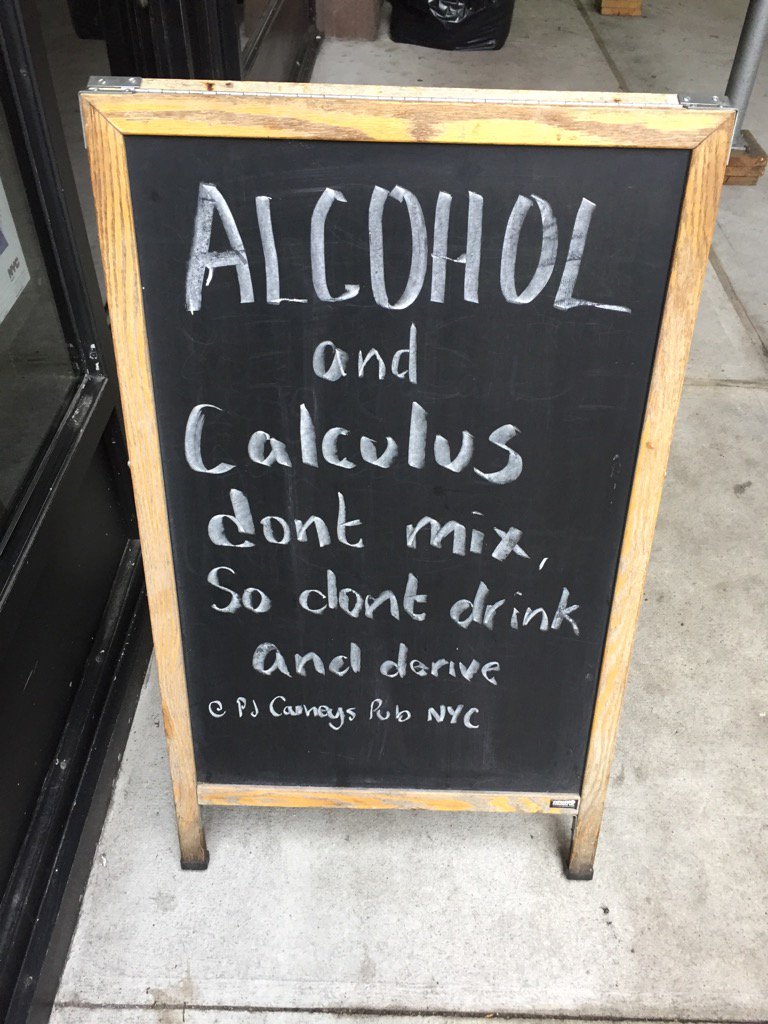 ALCOHOL
and
Calculus
dont mix,
So dont drink
and derive
@ PJ Carneys Pub NYC
NYC